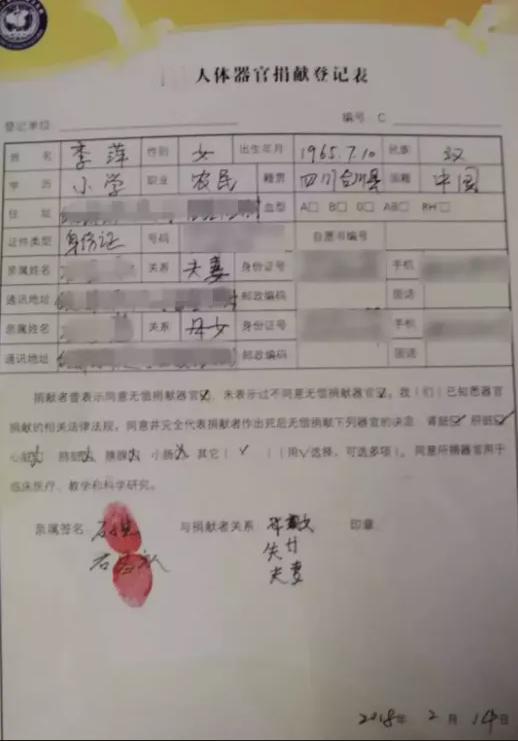 人体器官捐献登记表
登记单位 编号 C
姓名 李萍 性别 女 出生年月 1965.7.10 民族 汉
学历 小学 职业 农民 籍贯 四川合川县 国籍 中国
住址 血型 A□ B□ O□ AB□ RH□
证件类型 身份证 号码 自愿书编号
亲属姓名 关系 夫妻 身份证号 手机
通讯地址 邮政编码 固话
亲属姓名 关系 母女 身份证号 手机
通讯地址 邮政编码 固话
捐献者曾表示同意无偿捐献器官☑、未表示过不同意无偿捐献器官☑。我（们）已知悉器官
捐献的相关法律法规，同意并完全代表捐献者作出死后无偿捐献下列器官的决定：肾脏☑ 肝脏☑
心脏☑ 肺脏☑ 胰腺☑ 小肠☑ 其它（ √ ）（用√选择，可选多项）。同意所捐器官用于
临床医疗、教学和科学研究。
亲属签名： 与捐献者关系 印章：
夫妻
2018年 2 月 14日